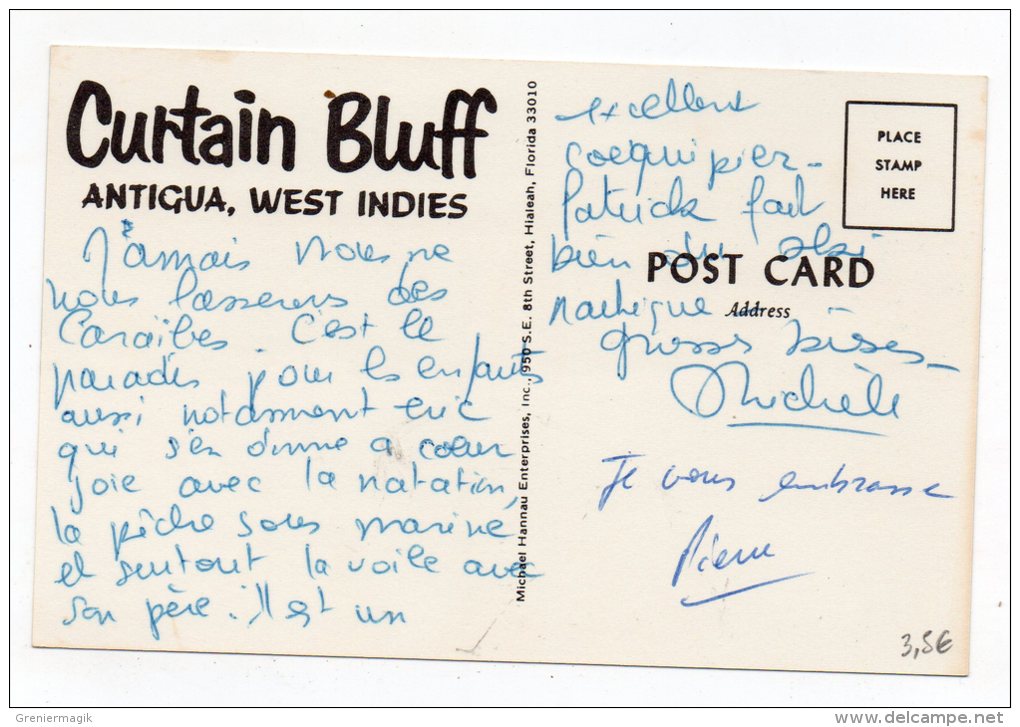 Curtain Bluff
ANTIGUA, WEST INDIES
Jamais nous ne
nous lasserons des
Caraïbes. C'est le
paradis pour les enfants
aussi notamment eric
qui s'en donne a cœur
joie avec la natation,
la pêche sous marine,
et surtout la voile avec
son père. Il est un
Michael Hannau Enterprises, Inc., 950 S.E. 8th Street, Hialeah, Florida 33010
excellent
coequipier -
Patrick fait
bien du ski
nautique
PLACE
STAMP
HERE
POST CARD
Address
grosses bises -
Michèle
Je vous embrasse
Pierre
3,5€
Greniermagik
www.delcampe.net